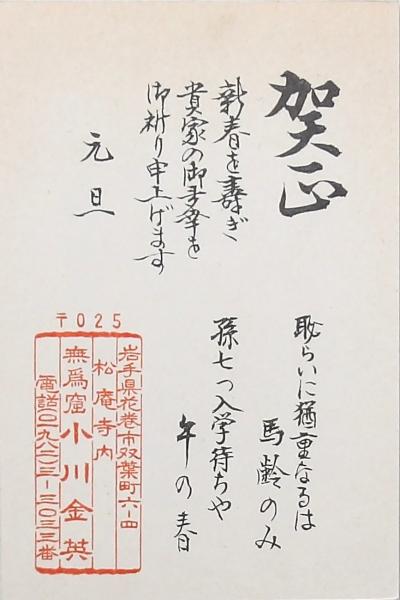 賀正
新春を壽ぎ
貴家の御多幸を
御祈り申上げます
元旦
恥らいに猶重なるは
馬齢のみ
孫七つ入学待ちや
午の春
〒025
岩手県花巻市双葉町六ー四
松庵寺内
無為窟 小川金英
電話〇一九八(二)ー三〇三三番